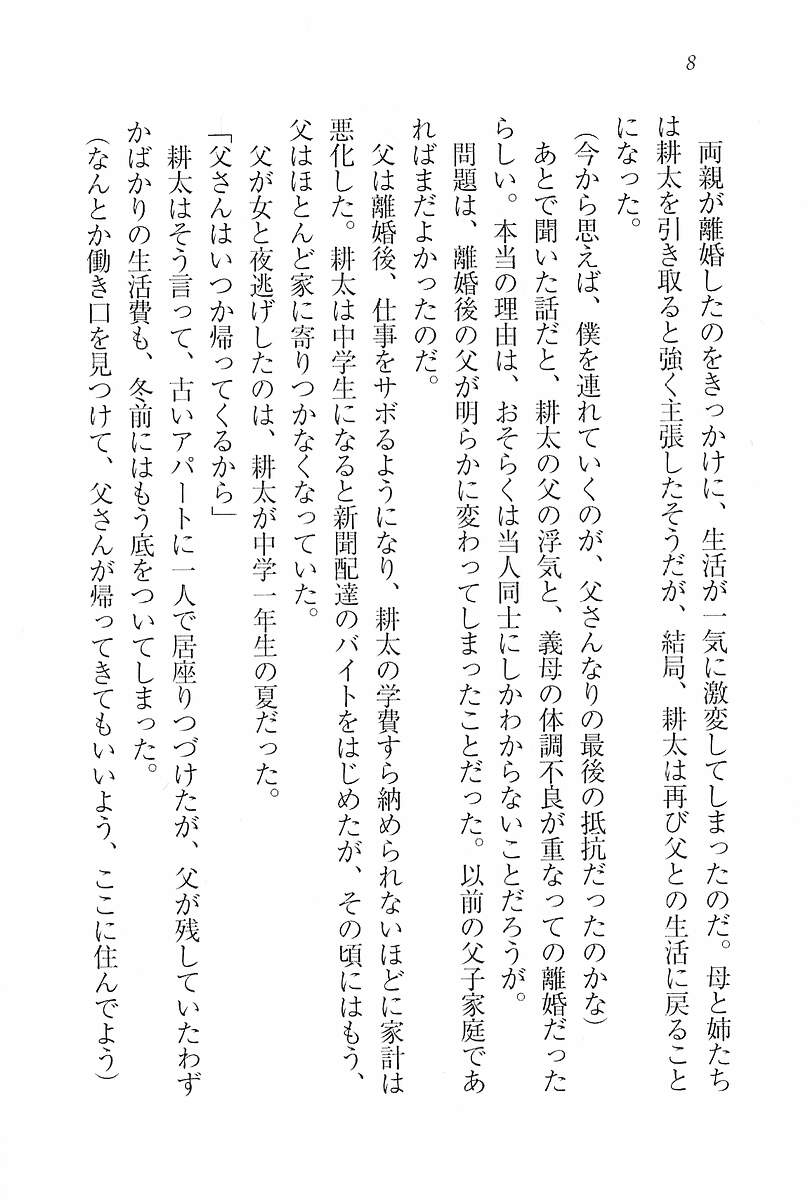 8
両親が離婚したのをきっかけに、生活が一気に激変してしまったのだ。母と姉たち
は耕太を引き取ると強く主張したそうだが、結局、耕太は再び父との生活に戻ること
になった。
(今から思えば、僕を連れていくのが、父さんなりの最後の抵抗だったのかな)
あとで聞いた話だと、耕太の父の浮気と、義母の体調不良が重なっての離婚だった
らしい。本当の理由は、おそらくは当人同士にしかわからないことだろうが。
問題は、離婚後の父が明らかに変わってしまったことだった。以前の父子家庭であ
ればまだよかったのだ。
父は離婚後、仕事をサボるようになり、耕太の学費すら納められないほどに家計は
悪化した。耕太は中学生になると新聞配達のバイトをはじめたが、その頃にはもう、
父はほとんど家に寄りつかなくなっていた。
父が女と夜逃げしたのは、耕太が中学一年生の夏だった。
「父さんはいつか帰ってくるから」
耕太はそう言って、古いアパートに一人で居座りつづけたが、父が残していたわず
かばかりの生活費も、冬前にはもう底をついてしまった。
(なんとか働き口を見つけて、父さんが帰ってきてもいいよう、ここに住んでよう)